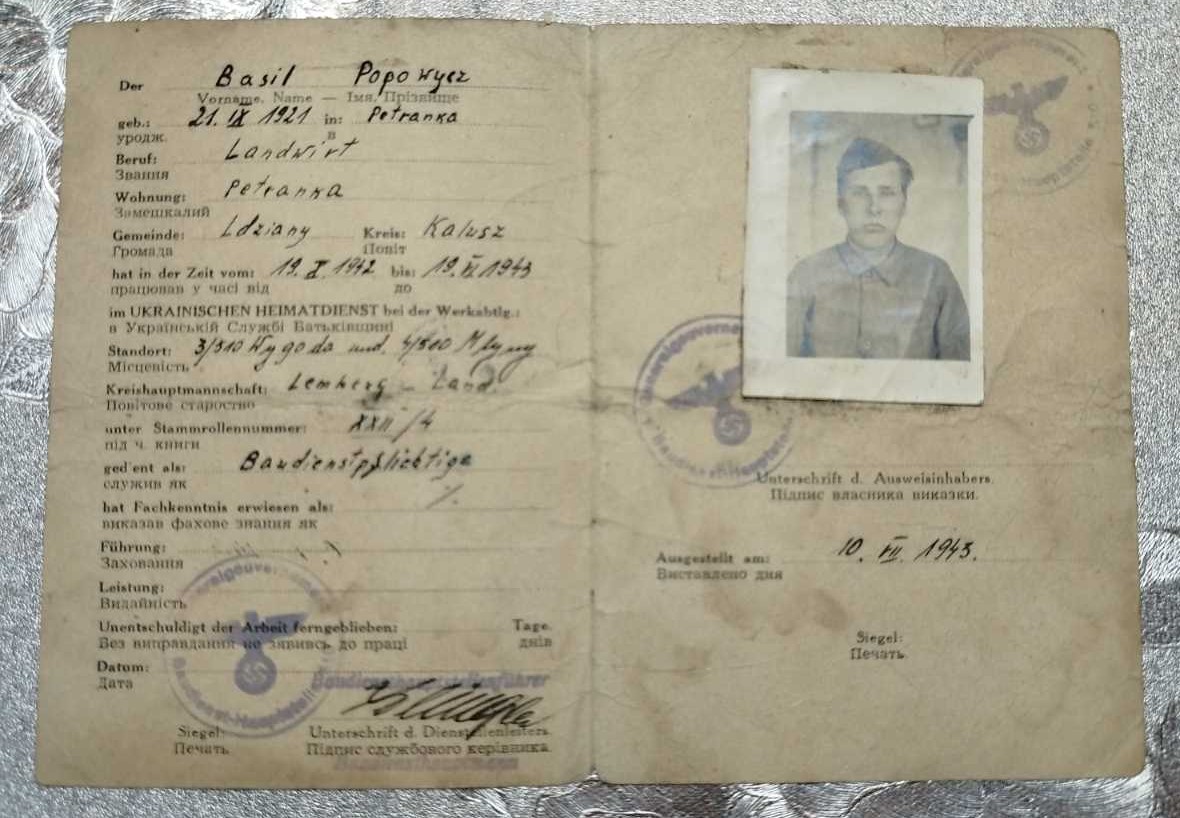 Der Basil Popowycz
Vorname, Name — Імя, Прізвище
geb.: 21. IX 1921 in: Petranka
уродж. в
Beruf: Landwirt
Звання
Wohnung: Petranka
Замешкалий
Gemeinde: Ldziany Kreis: Kalusz
Громада Повіт
hat in der Zeit vom: 19. X. 1942 bis: 19. VI 1943
працював у часі від до
im UKRAINISCHEN HEIMATDIENST bei der Werkabtlg.:
в Українській Службі Батьківщині
Standort: 3/510 Wygoda und. 4/500 Mlyny
Місцевість
Kreishauptmannschaft: Lemberg - Land.
Повітове староство
unter Stammrollennummer: XXII/4
під ч. книги
ged ent als: Baudienstpflichtige
служив як
hat Fachkenntnis erwiesen als: %
виказав фахове знання як
Führung:
Заховання
Leistung:
Видайність
Unentschuldigt der Arbeit ferngeblieben: Tage.
Без виправдання не зявивсь до праці днів
Datum:
Дата
Baudiensthauptstellenführer
Siegel: Unterschrift d. Dienststellenleiters.
Печать. Підпис службового керівника.
Generalgouvernement
Baudienst-Hauptstelle
Unterschrift d. Ausweisinhabers.
Підпис власника виказки.
Ausgestellt am: 10. VII. 1943.
Виставлено дня
Siegel:
Печать.